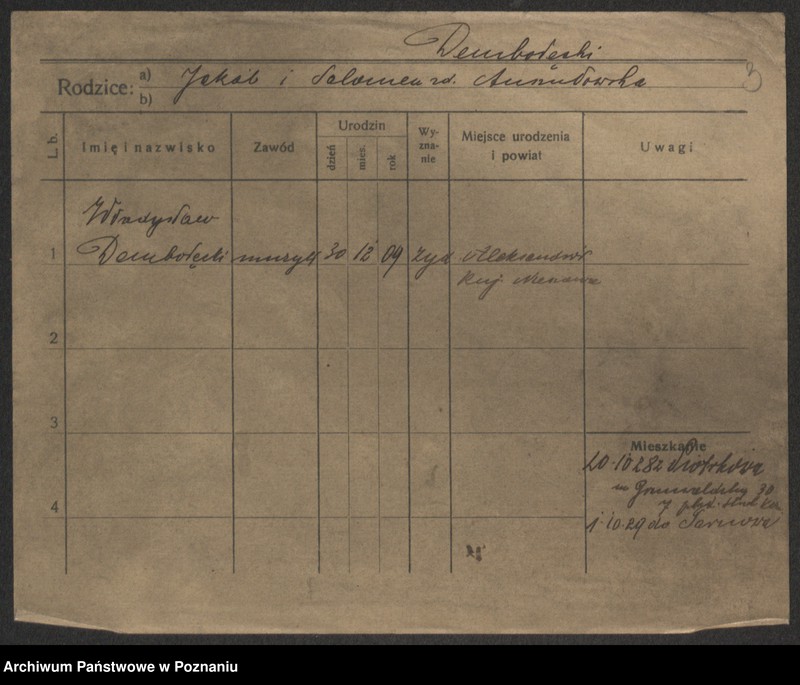 Dembołęcki
3
Rodzice: a) Jakób i Salomea zd.
b)
L. b. Imię i nazwisko Zawód Urodzin dzień mies. rok Wy-zna-nie Miejsce urodzenia i powiat Uwagi
Władysław
1 Dembołęcki muzyk 30 12 09 żyd Aleksandrów
Kuj. Nieszawa
2
3
Mieszkanie
20.10.28 z Piotrkowa
Grunwaldzka 30
4
1.10.29 do Tarnowa
Archiwum Państwowe w Poznaniu